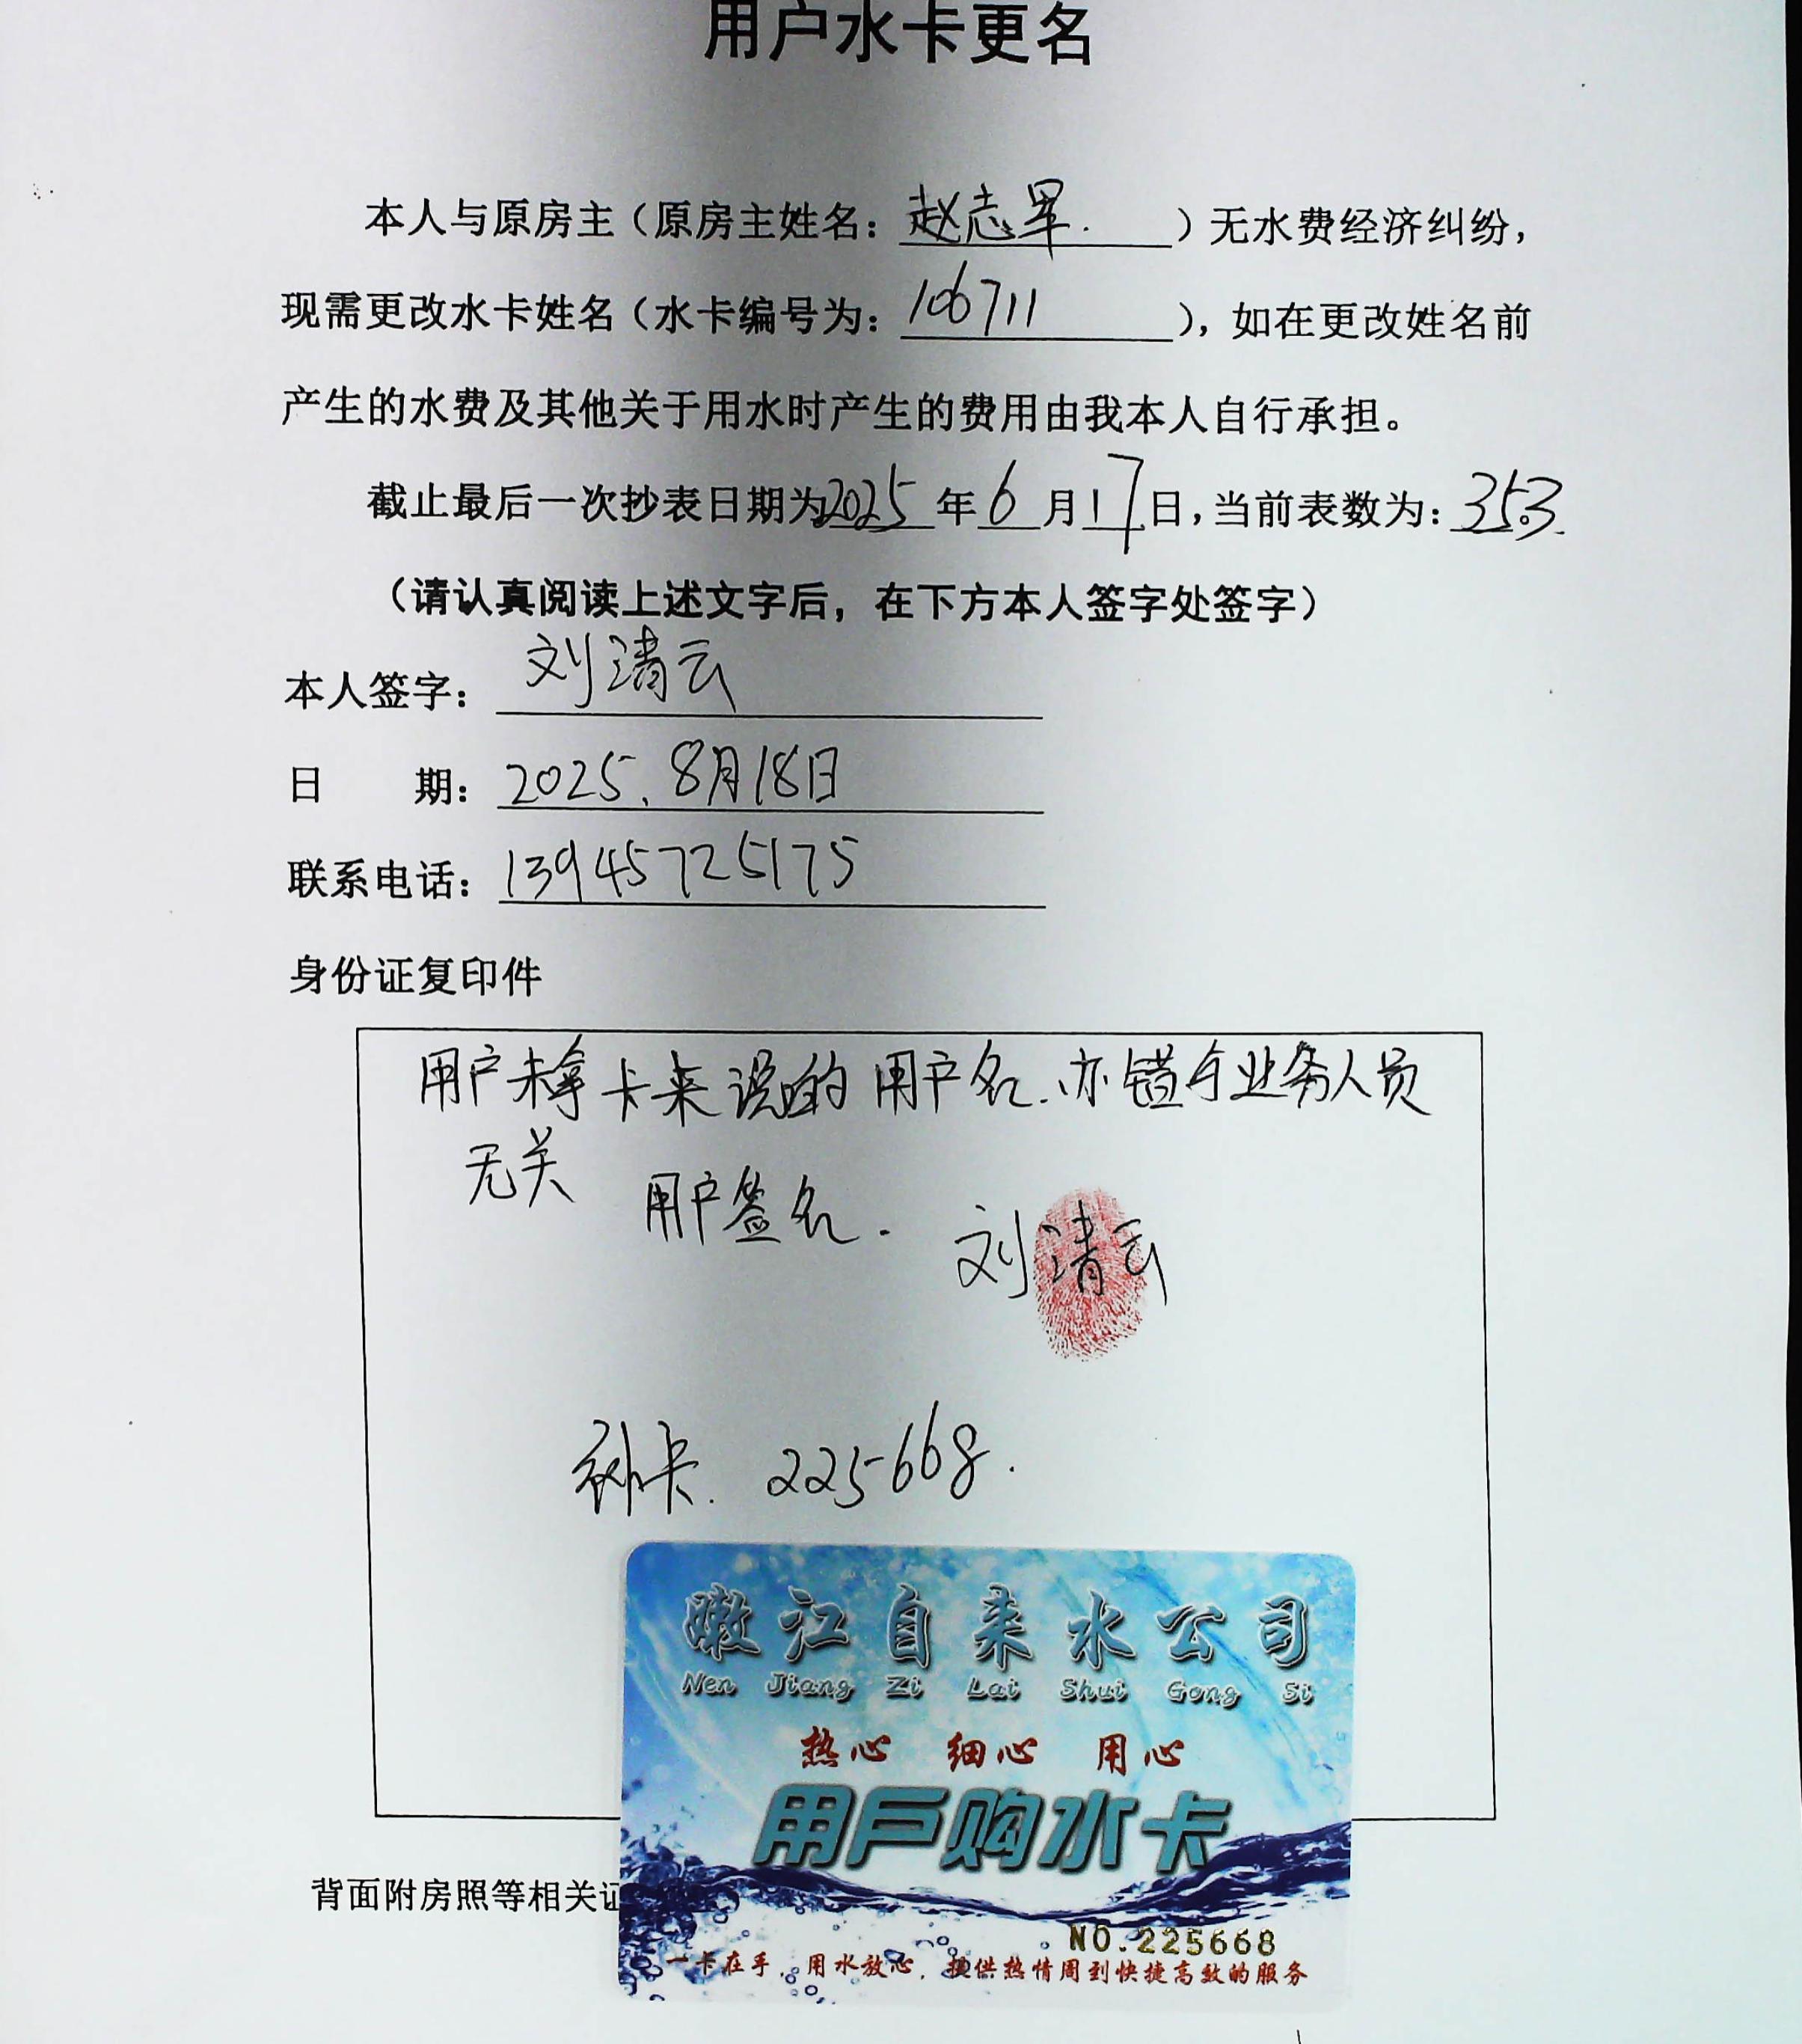 用户水卡更名
本人与原房主（原房主姓名：赵志军.）无水费经济纠纷，
现需更改水卡姓名（水卡编号为：106711），如在更改姓名前
产生的水费及其他关于用水时产生的费用由我本人自行承担。
截止最后一次抄表日期为2025年6月17日，当前表数为：353.
（请认真阅读上述文字后，在下方本人签字处签字）
本人签字：刘清云
日 期：2025.8月18日
联系电话：13945725175
身份证复印件
用户未拿卡来说的用户名.办错与业务人员
无关
用户签名.
刘清云
补卡. 225668.
嫩江自来水公司
Nen Jiang Zi Lai Shui Gong Si
热心 细心 用心
用户购水卡
背面附房照等相关证
NO.225668
一卡在手，用水放心，提供热情周到快捷高效的服务